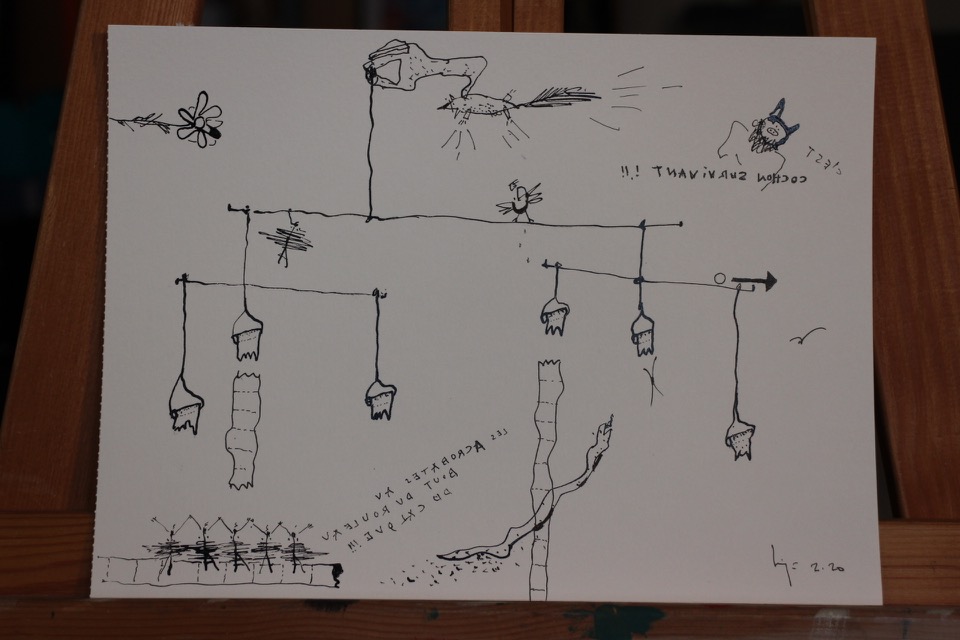 C'EST
COCHON SURVIVANT !!!
LES
ACROBATES AU
BOUT DU ROULEAU
DU !!!
2.20